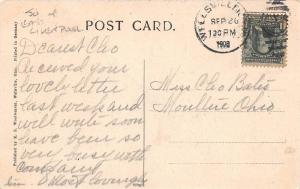 POST CARD.
So. of
East
Liverpool
Dearest Cleo
Received your
lovely letter
last week and
will write soon
have been so
very busy with
company
almost
WELLSVILLE
SEP 26
130 PM
1908
Miss Cleo Bates
Moultrie Ohio